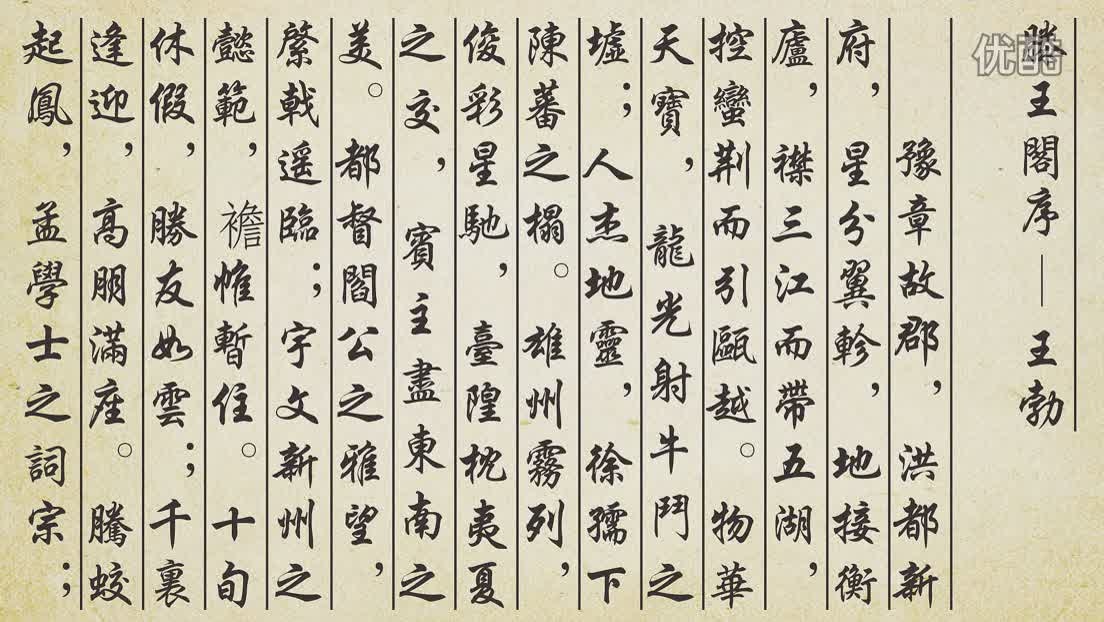 优酷
滕王閣序—王勃
豫章故郡，洪都新
府，星分翼軫，地接衡
廬，襟三江而帶五湖，
控蠻荆而引甌越。物華
天寶，龍光射牛鬥之
墟；人杰地靈，徐孺下
陳蕃之榻。雄州霧列，
俊彩星馳，臺隍枕夷夏
之交，賓主盡東南之
美。都督閻公之雅望，
棨戟遥臨；宇文新州之
懿範，襜帷暫住。十旬
休假，勝友如雲；千裏
逢迎，高朋滿座。騰蛟
起鳳，孟學士之詞宗；